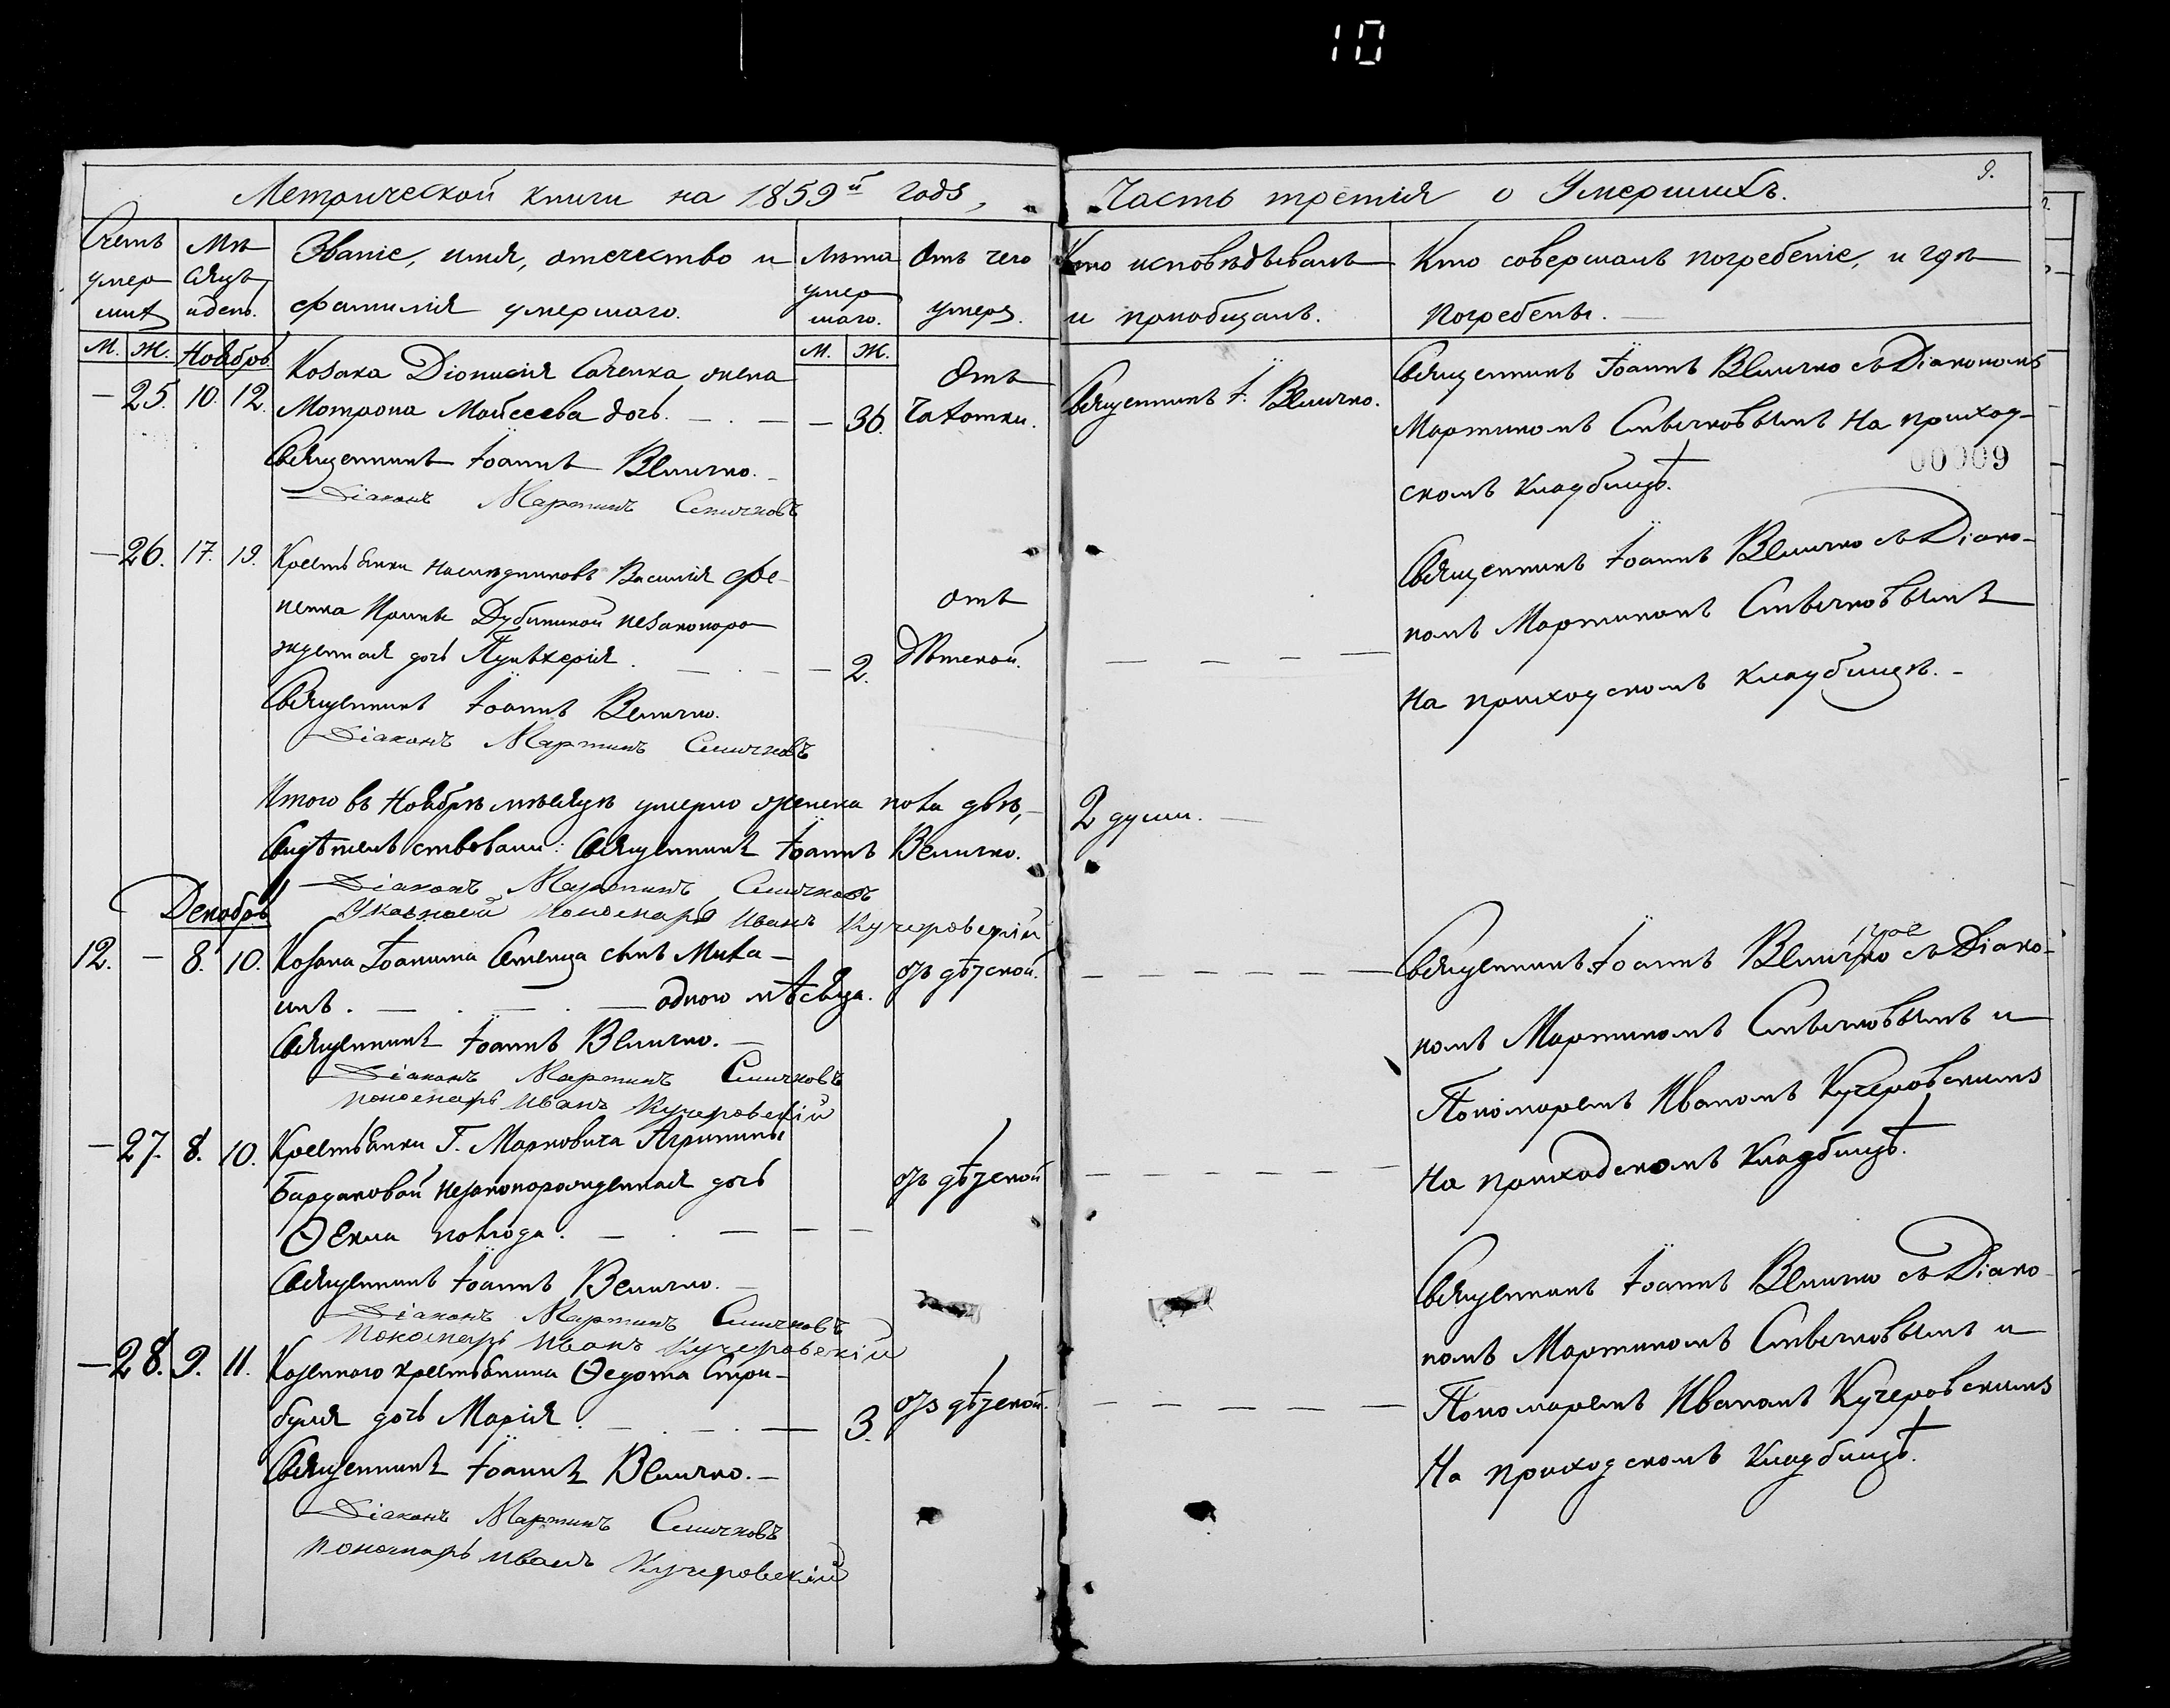 10
Метрической книги на 1859й годъ,
Часть третія о Умершихъ.
9.
Счетъ умер шихъ
Мѣ сяцъ и день.
Званіе, имя, отечество и
фамилія умершаго.
Лѣта умер шаго.
Отъ чего умеръ.
Кто исповѣдывалъ
и пріобщалъ.
Кто совершалъ погребеніе, и гдѣ
погребены.
М. Ж. Ноябрь М. Ж.
25. 10. 12. Козака Діонисія жена
Мотрона Мойсеева дочь. 36. Отъ чахотки.
Священникъ Іоаннъ Величко.
Діаконъ Мартинъ Спичковъ
Священникъ І. Величко.
Священникъ Іоаннъ Величко съ Діакономъ
Мартиномъ Спѣчковымъ на приход-
скомъ кладбищѣ.
00009
26. 17. 19. Крестьянки наслѣдниковъ Василія
незаконоро
жденная дочь Пульхерія. 2. отъ дѣтской.
Священникъ Іоаннъ Величко.
Діаконъ Мартинъ Спичковъ
Священникъ Іоаннъ Величко съ Діако-
номъ Мартиномъ Спѣчковымъ
на приходскомъ кладбищѣ.
Итого въ Ноябрѣ мѣсяцѣ умерло женска пола двѣ,
2 души.
Свидѣтельствовали: Священникъ Іоаннъ Величко.
Діаконъ Мартинъ Спичковъ
Пономарь Иванъ Кучеровскій
Декабрь
12. – 8. 10. Козака Іоанна сынъ Миха-
илъ. одного мѣсяца. отъ дѣтской.
Священникъ Іоаннъ Величко.
Діаконъ Мартинъ Спичковъ
пономарь Иванъ Кучеровскій
Священникъ Іоаннъ Величко съ Діако-
номъ Мартиномъ Спѣчковымъ и
Пономаремъ Иваномъ Кучеровскимъ
на приходскомъ кладбищѣ.
27. 8. 10. Крестьянки Г. Марковича Агрипины
Бардаковой незаконорожденная дочь
Ѳекла полгода. отъ дѣтской
Священникъ Іоаннъ Величко.
Діаконъ Мартинъ Спичковъ
Пономарь Иванъ Кучеровскій
Священникъ Іоаннъ Величко съ Діако
номъ Мартиномъ Спѣчковымъ и
Пономаремъ Иваномъ Кучеровскимъ
на приходскомъ кладбищѣ.
28. 9. 11. Козеннаго крестьянина Ѳедота Стри-
буля дочь Марія. 3. отъ дѣтской.
Священникъ Іоаннъ Величко.
Діаконъ Мартинъ Спичковъ
Пономарь Иванъ Кучеровскій